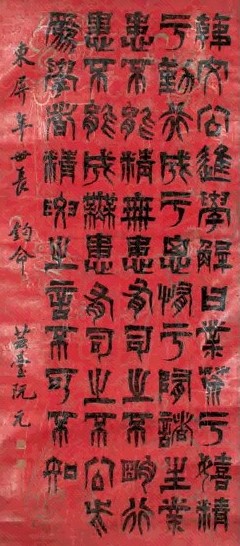 韓文公進學解曰業榮于嬉精
于勤行成于思惰于隨諸生業
患不能精無患有司之不明行
患不能成無患有司之不公此
爲學者精之言不可不知
東屏年世長 鈞命 芸臺阮元